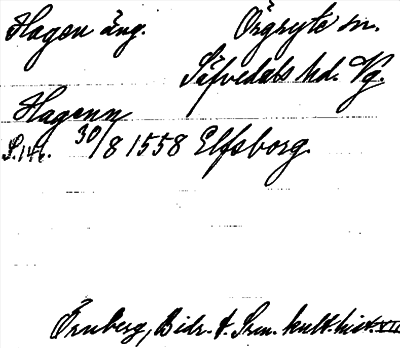 Hagen äng. Örgryte sn.
Säfvedals hd. Vg.
Hagenn
S. 146. 30/8 1558 Elfsborg.
Örnberg, Bidr. t. Svn. kult. hist. XII